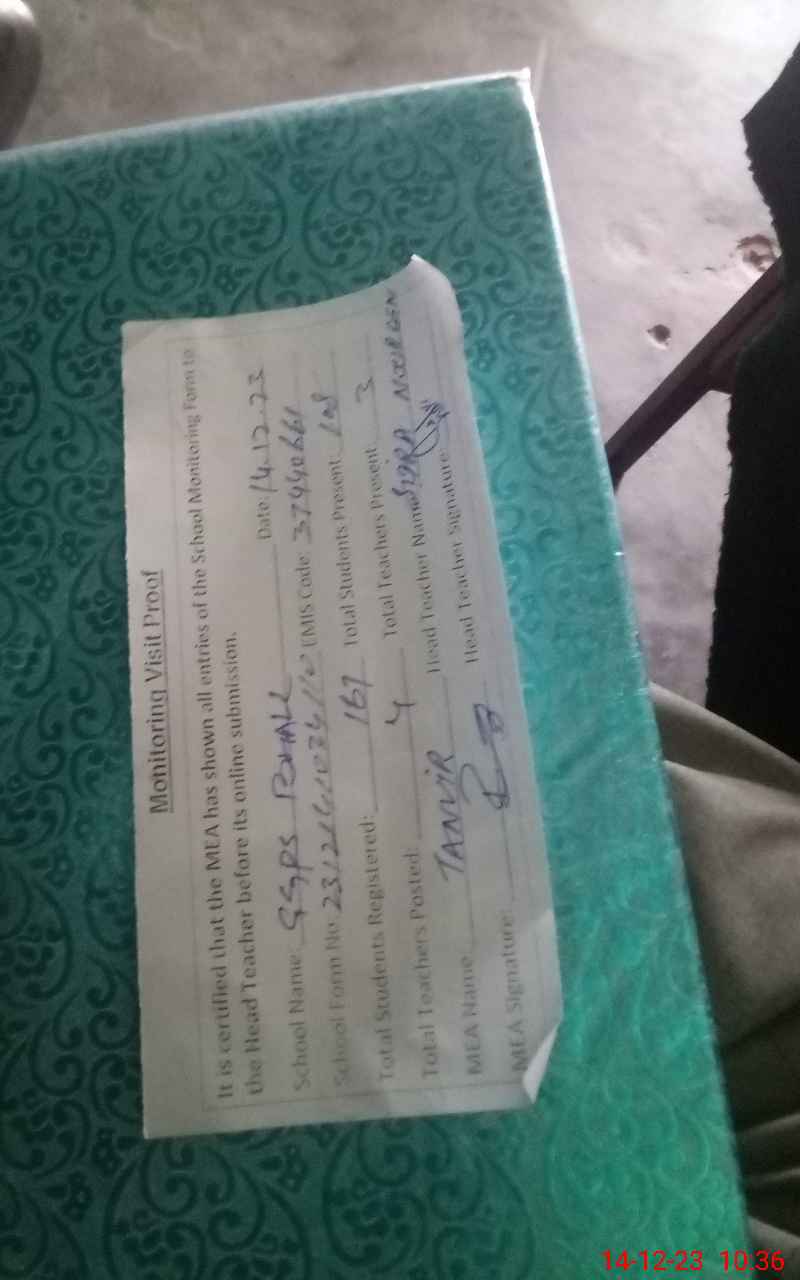 Monitoring Visit Proof
It is certified that the MEA has shown all entries of the School Monitoring Form to
the Head Teacher before its online submission.
School Name: GGPS Date: 14.12.23
School Form No: EMIS Code: 37440661
Total Students Registered: 167 Total Students Present: 108
Total Teachers Posted: 4 Total Teachers Present: 3
MEA Name: TANVIR Head Teacher Name: SIDRA
MEA Signature: Head Teacher Signature:
14-12-23 10:36